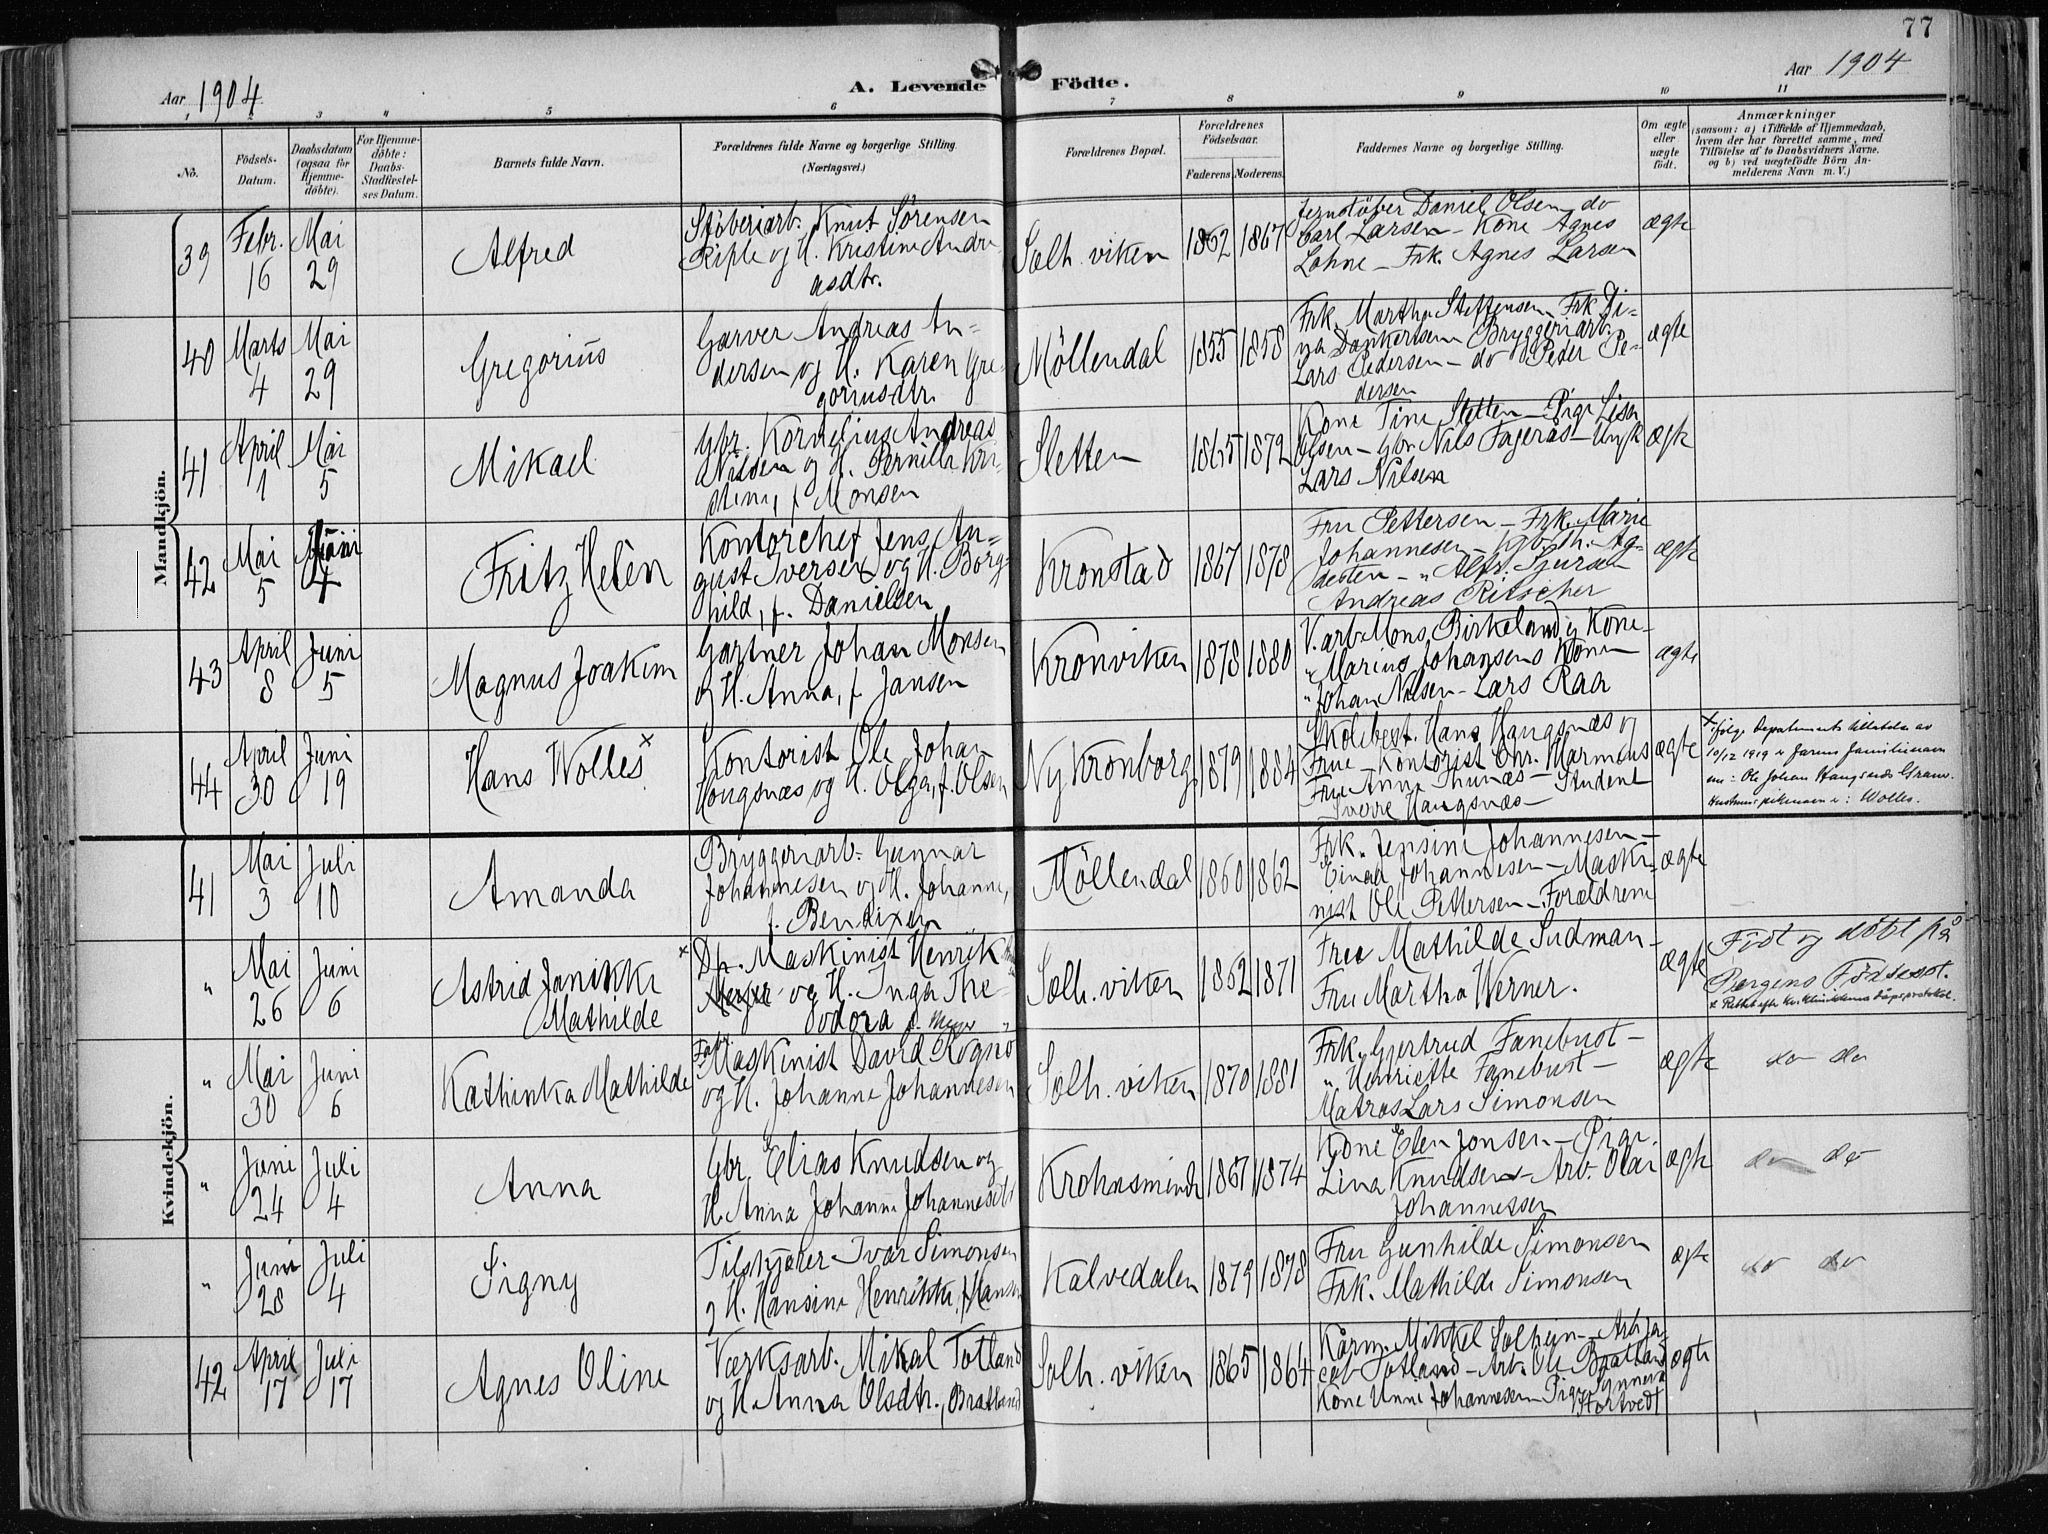 77
Aar 1904.
A. Levende Födte.
Aar 1904
1 2 3 4 5 6 7 8 9 10 11
No.
Födsels-
Datum.
Daabsdatum
(ogsaa för
Hjemme-
döbte).
For Hjemme-
döbte:
Daabs-
Stadfæstel-
ses Datum.
Barnets fulde Navn.
Forældrenes fulde Navne og borgerlige Stilling.
(Næringsvei.)
Forældrenes Bopæl.
Forældrenes
Födselsaar.
Faderens. Moderens.
Faddernes Navne og borgerlige Stilling.
Om ægte
eller
uægte
født.
Anmærkninger
(saasom: a) i Tilfælde af Hjemmedaab,
hvem der har forrettet samme, med
Tilföielse af to Daabsvidners Navne,
og b) ved uægtefödte Börn An-
melderens Navn m. V.)
Mandkjön.
39
Febr.
16
Mai
29
Alfred
Stöberiarb. Knut Sörensen
Riple og H. Kristine Andre-
asdtr.
Solh. viken
1862
1867
Jernstöber Daniel Olsen do
Carl Larsen - Kone Agnes
Lohne - Frk. Agnes Larsen
ægte
40
Marts
4
Mai
29
Gregorius
Garver Andreas An-
dersen og H. Karen Gre-
goriusdtr.
Möllendal
1855
1858
Frk. Martha Steffensen Frk Di-
na Dankertsen Bryggeriarb.
Lars Pedersen - do Peder Pe-
dersen
ægte
41
April
1
Mai
5
Mikael
Gbr. Kornelius Andreas
Nilsen og H. Pernilla Kri-
stine, f. Monsen
Sletten
1865
1872
Kone Tine Sletten - Pige Lisa
Olsen - Gbr. Nils Fagerås - Ungk
Lars Nilsen
ægte
42
Mai
5
Juni
4
Fritz Helèn
Kontorchef Jens Au-
gust Iversen og H. Borg-
hild, f. Danielsen
Kronstad
1867
1878
Fru Pettersen - Frk. Marie
Johannesen
Andreas Ritscher
ægte
43
April
8
Juni
5
Magnus Joakim
Gartner Johan Monsen
og H. Anna, f. Jansen
Kronviken
1878
1880
V.arb. Mons Birkeland og Kone -
" Marius Johansens Kone
" Johan Nilsen - Lars Raa
ægte
44
April
30
Juni
19
Hans Wolles x
Kontorist Ole Johan
Hougsnæs og H. Olga, f. Olsen
Ny Kronborg
1879
1884
Skolebest. Hans Haugsnæs og
Frue - Kontorist Chr. Marmous
Fru Anna Thunæs - Student
Sverre Haugsnæs -
ægte
x Ifölge Departements tilladelse av
10/12 1919 er Farens familienavn
nu: Ole Johan Haugsnæs Gram.
: Wolles.
Kvindekjön.
41
Mai
3
Juli
10
Amanda
Bryggeriarb. Gunnar
Johannesen og H. Johanne,
f. Bendixen
Möllendal
1860
1862
Frk. Jensine Johannesen -
Einar Johannesen - Maski-
nist Ole Pettersen - Forældrene
ægte
"
Mai
26
Juni
6
Astrid Janikke x
Mathilde
Dp. Maskinist Henrik
Meyer og H. Inga The-
odora f. Meyer
Solh. viken
1862
1871
Frue Mathilde Sudman -
Fru Martha Werner.
ægte
Födt og döbt på
Bergens Födselsst.
x Rettet efter Kv.klinikkens dåpsprotokol.
"
Mai
30
Juni
6
Kathinka Mathilde
Fabr.
Maskinist David Rognø
og H. Johanne Johannesen
Solh. viken
1870
1881
Frk. Gjertrud Fanebust -
" Henriette Fanebust -
Matros Lars Simonsen
ægte
do do
"
Juni
24
Juli
4
Anna
Gbr. Elias Knudsen og
H. Anna Johanne Johannesdtr
Krohnsminde
1867
1874
Kone Elen Jonsen - Pige
Lina Knudsen - Arb. Olai
Johannessen
ægte
do do
"
Juni
28
Juli
4
Signy
Tilskjærer Ivar Simonsen
og H. Hansine Henrikke, f. Hansen
Kalvedalen
1879
1878
Fru Gunhilde Simonsen
Frk. Mathilde Simonsen
ægte
do do
42
April
17
Juli
17
Agnes Oline
Værksarb. Mikal Totland
og H. Anna Olsdtr., Bratland
Solh. viken
1865
1864
Kårm. Mikkel Solheim - Arb. Ja-
cob Totland - Arb. Ole Bratland
Kone Unne Johannesen Pige Synneva
Stortvedt
ægte